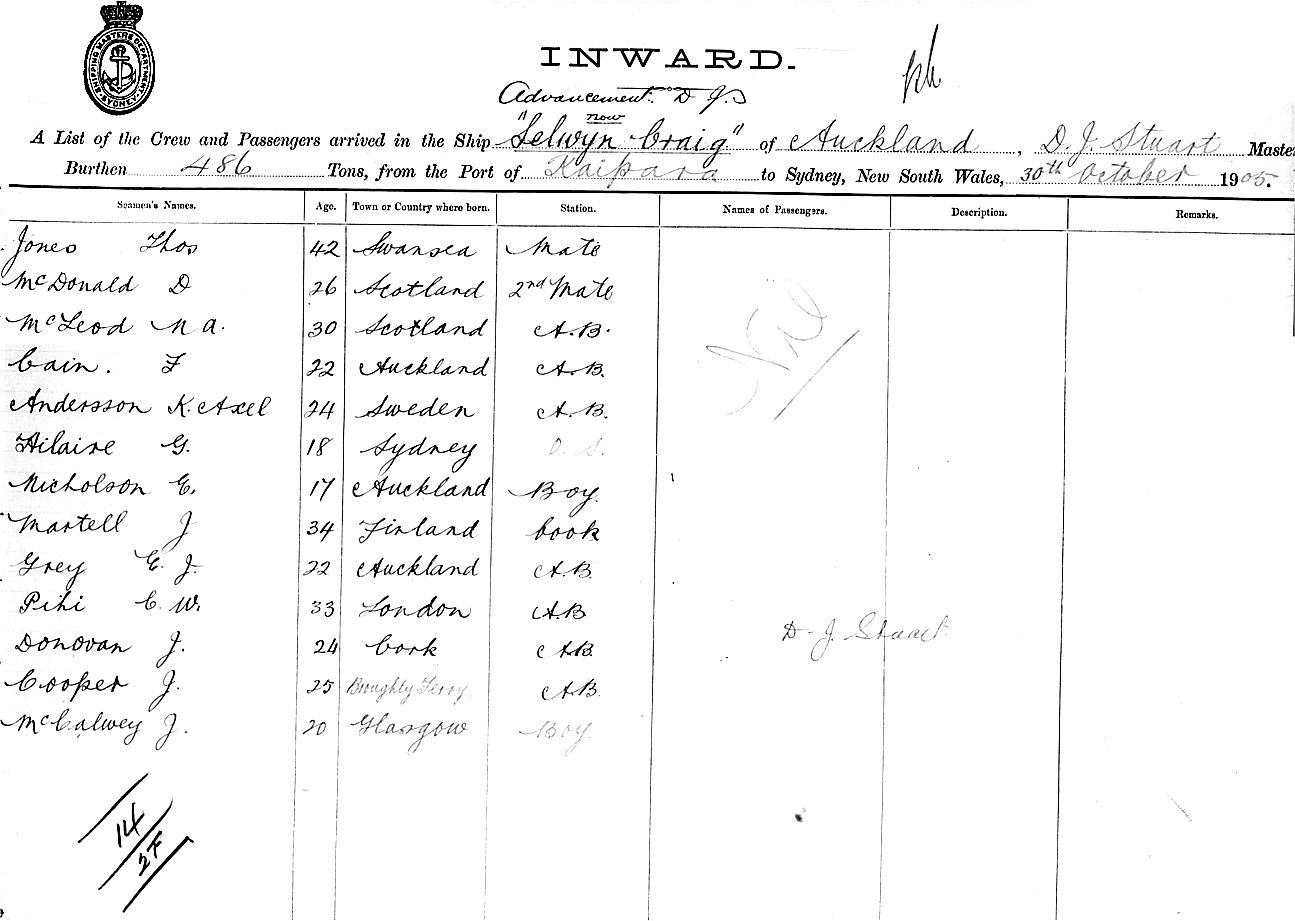 SHIPPING MASTERS DEPARTMENT. SYDNEY.
INWARD.
Advancement. D J S
now
A List of the Crew and Passengers arrived in the Ship "Selwyn Craig" of Auckland, D. J. Stuart Master
Burthen 486 Tons, from the Port of Kaipara to Sydney, New South Wales, 30th October 1905.
Seamen's Names. Age. Town or Country where born. Station. Names of Passengers. Description. Remarks.
Jones Thos 42 Swansea Mate
McDonald D 26 Scotland 2nd Mate
McLeod N A. 30 Scotland A.B.
Cain. F 22 Auckland A.B.
Nil
Andersson K. Axel 24 Sweden A.B.
Hilaire G. 18 Sydney O.S.
Nicholson E. 17 Auckland Boy.
Martell J 34 Finland Cook
Grey E. J. 22 Auckland A.B.
Pihi C. W. 33 London A.B.
D. J. Stuart
Donovan J. 24 Cork A.B.
Cooper J. 25 Broughty Ferry A.B.
McCalwey J. 20 Glasgow Boy.
14
2F